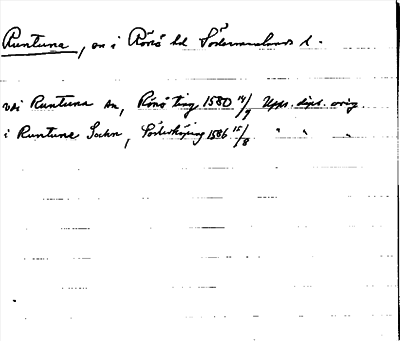 Runtuna, sn i Rönö hd Södermanlands l.
vdi Runtuna sn, Rönö ting 1580 14/9 Upps. dipl. orig
i Runtuna Sochn, Söderköping 1586 15/8 " " "